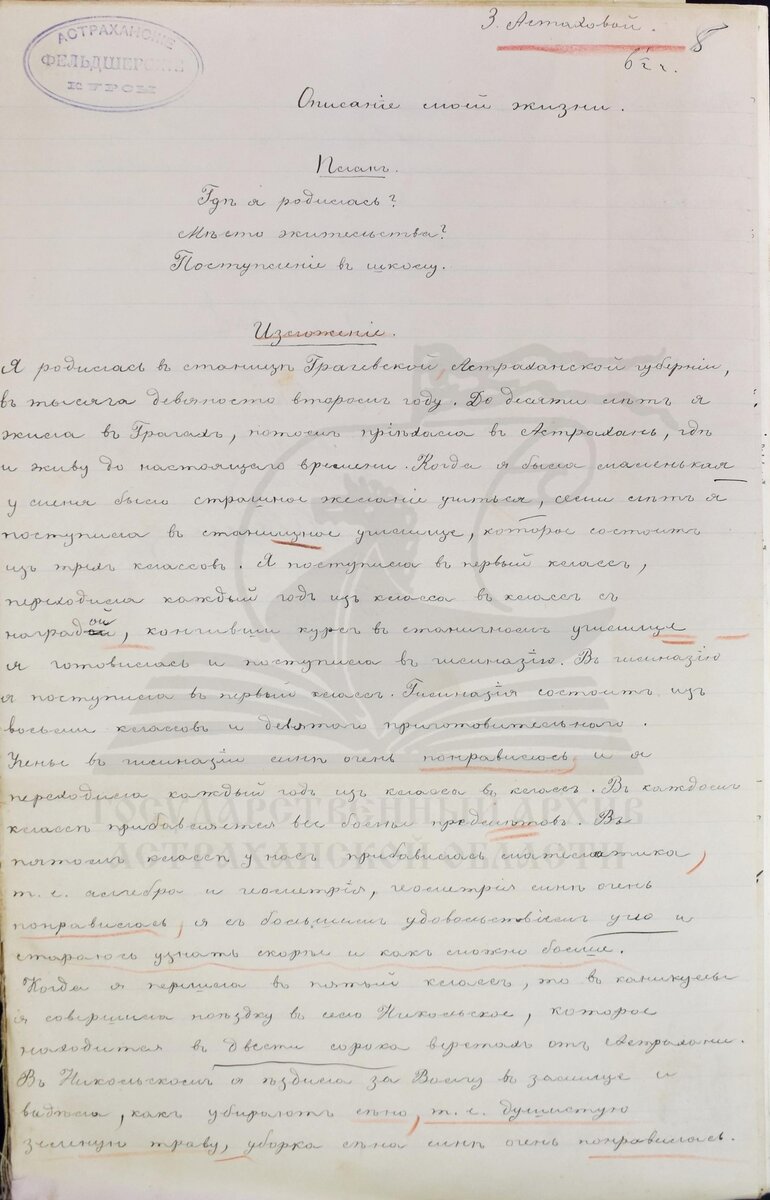 АСТРАХАНСКІЕ
ФЕЛЬДШЕРСКІЕ
КУРСЫ
З. Астаховой.
8
Описаніе моей жизни.
Планъ.
Гдѣ я родилась?
Мѣсто жительства?
Поступленіе въ школу.
Изложеніе.
Я родилась въ станицѣ Грачевской, Астраханской губерніи,
въ тысяча девяносто второмъ году. До десяти лѣтъ я
жила въ Грачахъ, потомъ пріѣхала въ Астрахань, гдѣ
и живу до настоящаго времени. Когда я была маленькая
у меня было страшное желаніе учиться, семи лѣтъ я
поступила въ станишное училище, которое состоитъ
изъ трехъ классовъ. Я поступила въ первый классъ,
переходила каждый годъ изъ класса въ классъ съ
наградой, кончивши курсъ въ станичномъ училище
я готовилась и поступила въ гимназію. Въ гимназію
я поступила въ первый классъ. Гимназія состоитъ изъ
восьми классовъ и девятого приготовительного.
Ученье въ гимназіи мнѣ очень понравилось, и я
переходила каждый годъ изъ класса въ классъ. Въ каждомъ
классѣ прибавляется все болѣе предметовъ. Въ
пятомъ классѣ у насъ прибавилась математика,
т. е. алгебра и геометрія, геометрія мнѣ очень
понравилась, я съ большимъ удовольствіемъ учю и
стараюсь узнать скорѣе и какъ можно болше.
Когда я перешла въ пятый классъ, то въ каникулы
я совершила поѣздку въ село Никольское, которое
находится въ двести сорока верстахъ отъ Астрахани.
Въ Никольскомъ я ѣздила за Волгу въ займище и
видѣла, какъ убираютъ сѣно, т. е. душистую
зеленую траву, уборка сѣна мнѣ очень понравилась.
ГОСУДАРСТВЕННЫЙ АРХИВ
АСТРАХАНСКОЙ ОБЛАСТИ